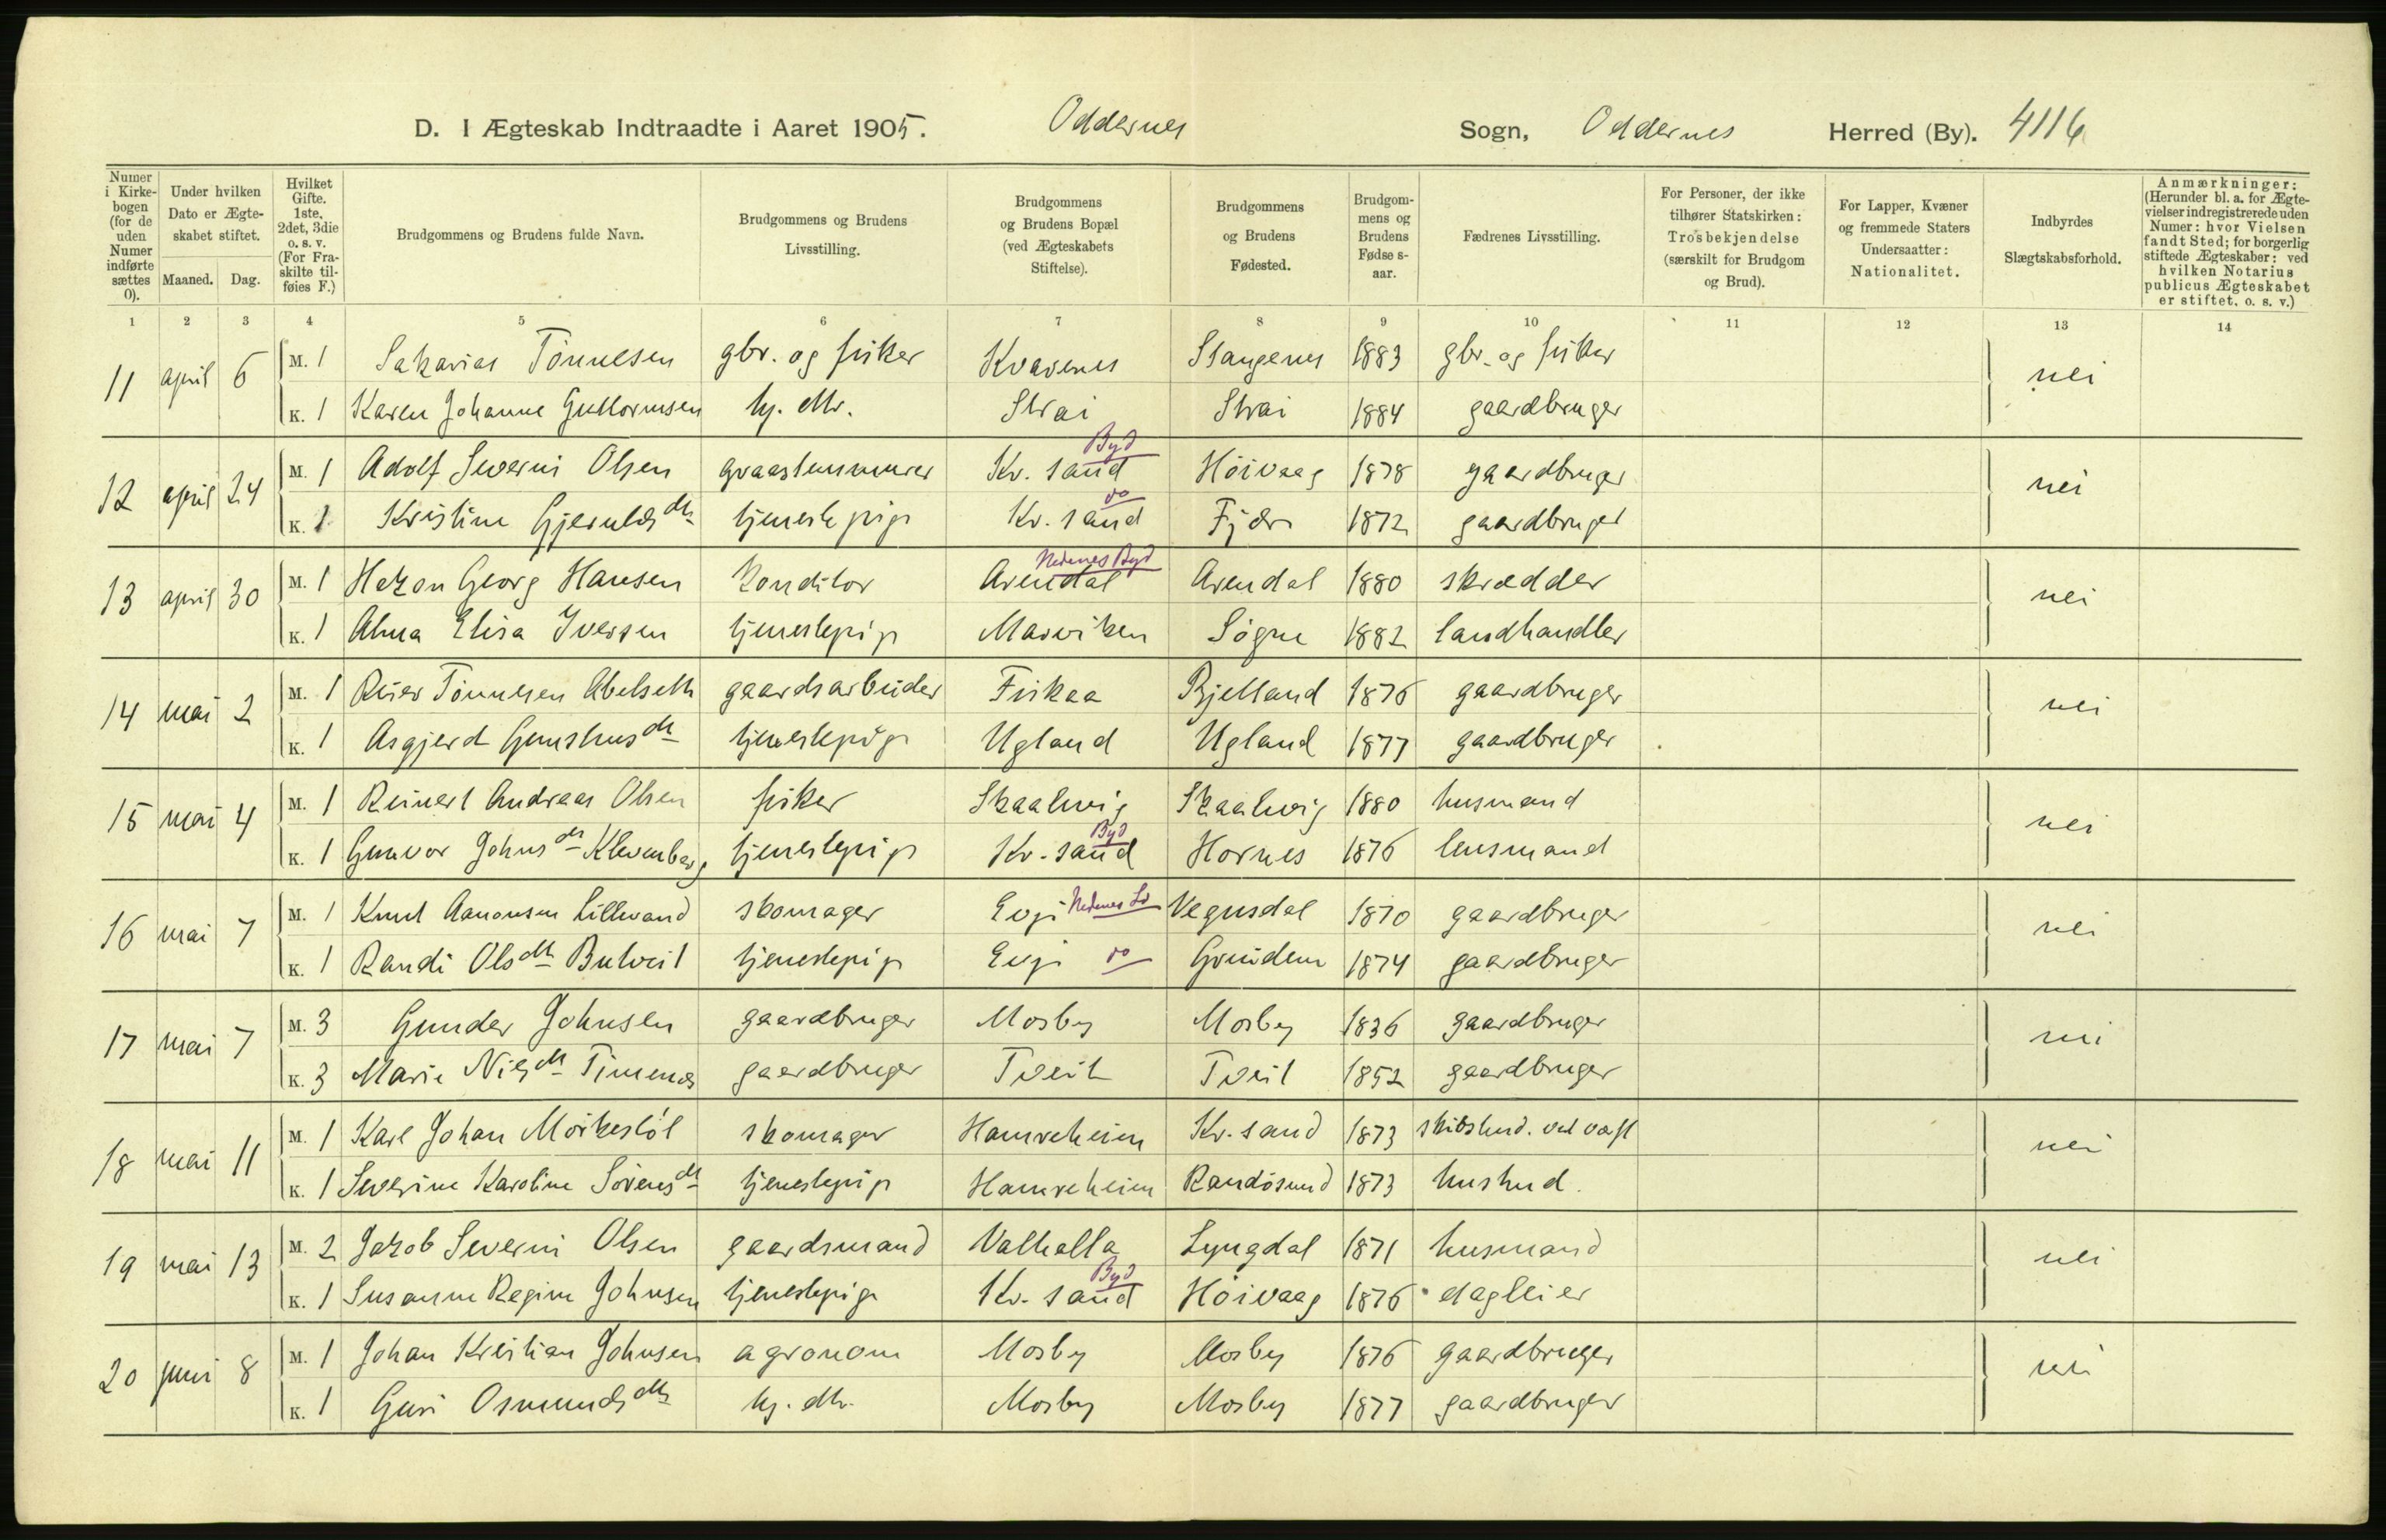 D. I Ægteskab Indtraadte i Aaret 1905. Oddernes Sogn, Oddernes Herred (By). 4116
Numer i Kirkebogen (for de uden Numer indførte sættes 0). Under hvilken Dato er Ægteskabet stiftet. Maaned. Dag. Hvilket Gifte. 1ste, 2det, 3die o. s. v. (For Fraskilte tilføies F.) Brudgommens og Brudens fulde Navn. Brudgommens og Brudens Livsstilling. Brudgommens og Brudens Bopæl (ved Ægteskabets Stiftelse). Brudgommens og Brudens Fødested. Brudgommens og Brudens Fødselsaar. Fædrenes Livsstilling. For Personer, der ikke tilhører Statskirken: Trosbekjendelse (særskilt for Brudgom og Brud). For Lapper, Kvæner og fremmede Staters Undersaatter: Nationalitet. Indbyrdes Slægtskabsforhold. Anmærkninger: (Herunder bl. a. for Ægtevielser indregistrerede uden Numer: hvor Vielsen fandt Sted; for borgerlig stiftede Ægteskaber: ved hvilken Notarius publicus Ægteskabet er stiftet, o. s. v.)
1 2 3 4 5 6 7 8 9 10 11 12 13 14
11 april 6 M. 1 Sakarias Tönnesen gbr. og fisker Kvavenes Stangenes 1883 gbr. og fisker nei
K. 1 Karen Johanne Guttormsen hj. dtr. Strai Strai 1884 gaardbruger
12 april 24 M. 1 Adolf Severin Olsen graastensmurer Kv. sand Byd Höivaag 1878 gaardbruger nei
K. 1 Kristine dtr tjenestepige Kv. sand do Fjære 1872 gaardbruger
13 april 30 M. 1 Hakon Georg Hansen konditor Arendal Nedenes Byd Arendal 1880 skrædder nei
K. 1 Alma Elisa Iversen tjenestepige Marviken Sögne 1882 landhandler
14 mai 2 M. 1 Reier Tönnesen Abelseth gaardsarbeider Fiskaa Bjelland 1876 gaardbruger nei
K. 1 Asgjerd dtr tjenestepige Ugland Ugland 1877 gaardbruger
15 mai 4 M. 1 Reinert Andreas Olsen fisker Skaalevig Skaalevig 1880 husmand nei
K. 1 Gunvor Johnsdtr Klevenberg tjenestepige Kv. sand Byd Hornes 1876 lensmand
16 mai 7 M. 1 Knut Aanonsen Lillevand skomager Evje Nedenes Ld Vegusdal 1870 gaardbruger nei
K. 1 Randi Olsdtr tjenestepige Evje do 1874 gaardbruger
17 mai 7 M. 3 Gunder Johnsen gaardbruger Mosby Mosby 1836 gaardbruger nei
K. 3 Marie Nilsdtr Timenes gaardbruger Tveit Tveit 1852 gaardbruger
18 mai 11 M. 1 Karl Johan Mörkestöl skomager Hamreheien Kv. sand 1873 nei
K. 1 Severine Karoline Sörensdtr tjenestepige Hamreheien Randösund 1873
19 mai 13 M. 2 Jakob Severin Olsen gaardsmand Valhalla Lyngdal 1871 husmand nei
K. 1 Susanne Regine Johnsen tjenestepige Kv. sand Byd Höivaag 1876 dagleier
20 juni 8 M. 1 Johan Kristian Johnsen agronom Mosby Mosby 1876 gaardbruger nei
K. 1 Guri Osmundsdtr hj. dtr. Mosby Mosby 1877 gaardbruger